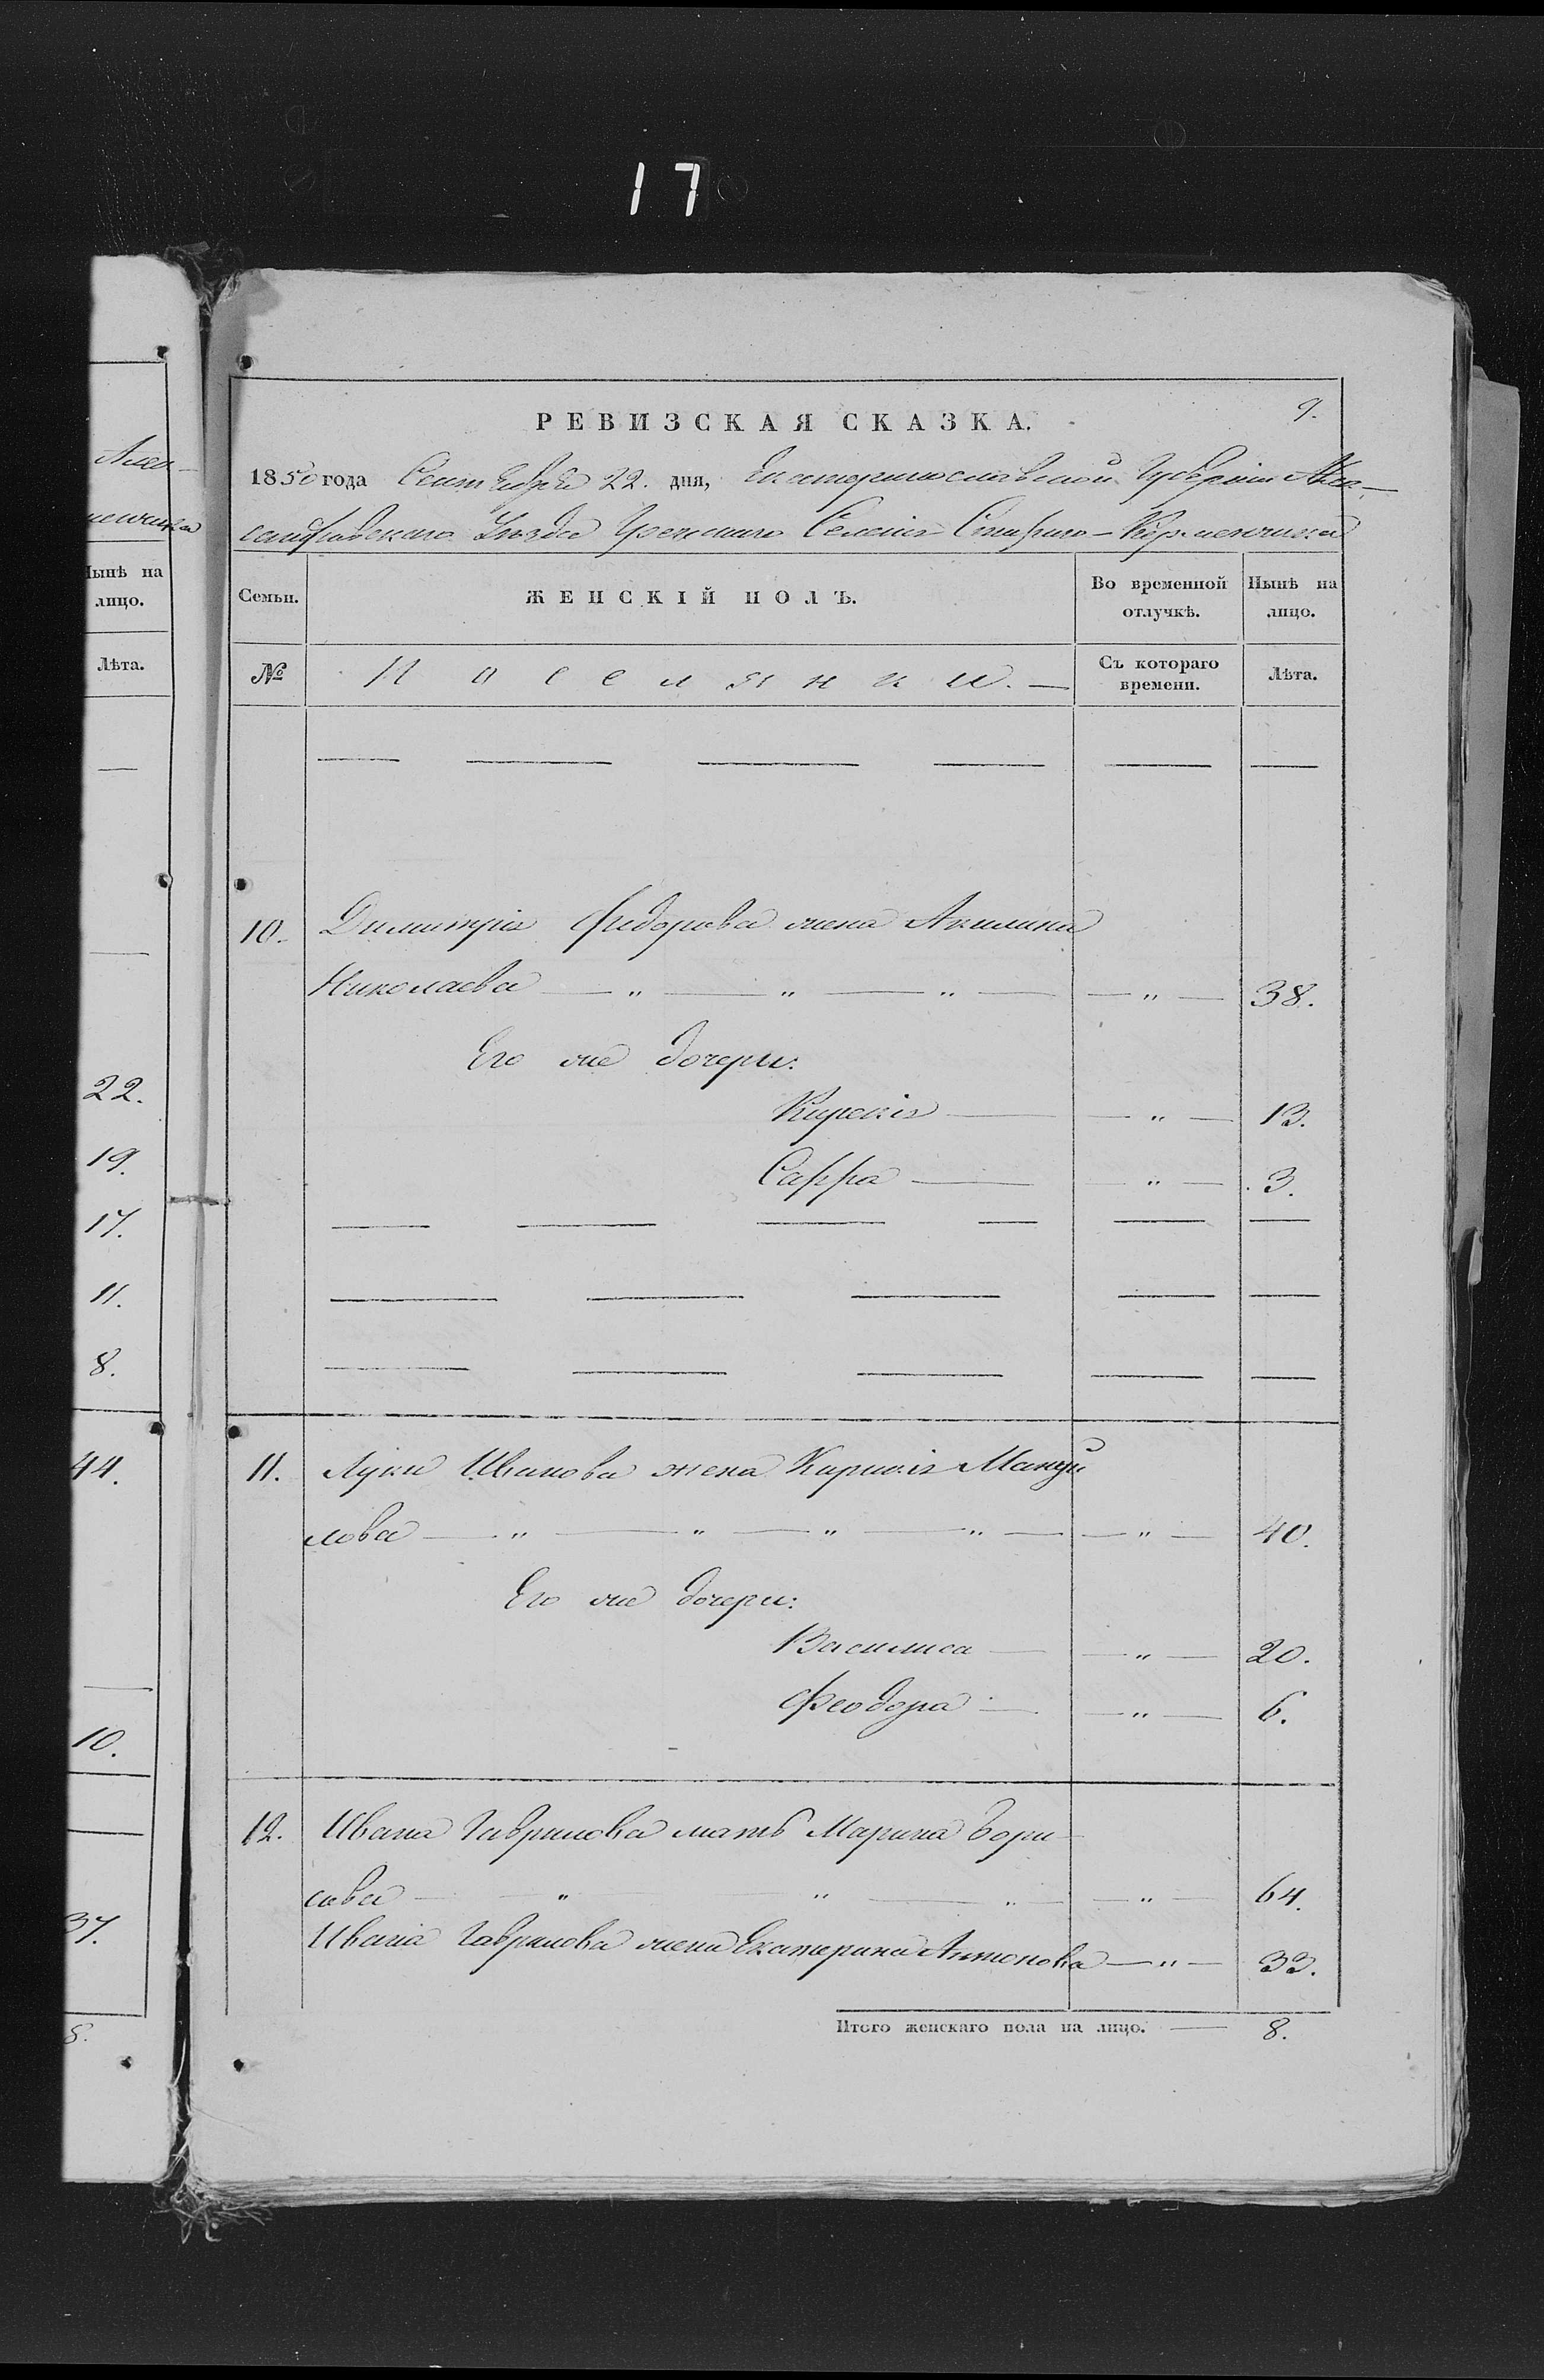 17
9.
РЕВИЗСКАЯ СКАЗКА.
1850 года Сентября 22. дня, Екатеринославской Губерніи Алек-
сандровскаго Уѣзда Греческаго Селенія Стараго-Керменчика
Семьи.
ЖЕНСКІЙ ПОЛЪ.
Во временной отлучкѣ.
Нынѣ на лицо.
№
Поселянки.
Съ котораго времени.
Лѣта.
10. Димитрія Федорова жена Акилина
Николаева — " — " — " — — " — 38.
Его же дочери:
Кирекія — — " — 13.
Сарра — — " — 3.
11. Луки Иванова жена Кирикія Мануй
лова — " — " — " — " — — " — 40.
Его же дочери:
Василиса — — " — 20.
Феодора — — " — 6.
12. Ивана Гаврилова мать Марина Бори-
сова — " " — " — — " — 64.
Ивана Гаврилова жена Екатерина Антонова — " — 33.
Итого женскаго пола на лицо. — 8.
Алек-
Нынѣ на
лицо.
Лѣта.
22.
19.
17.
11.
8.
44.
10.
37.
8.